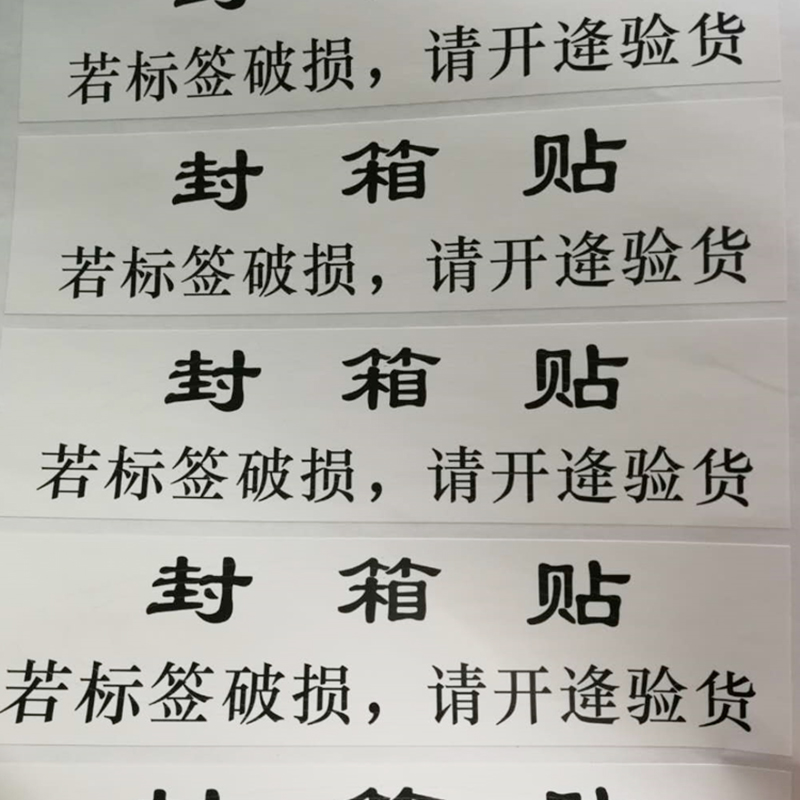 若标签破损，请开逄验货
封 箱 贴
若标签破损，请开逄验货
封 箱 贴
若标签破损，请开逄验货
封 箱 贴
若标签破损，请开逄验货